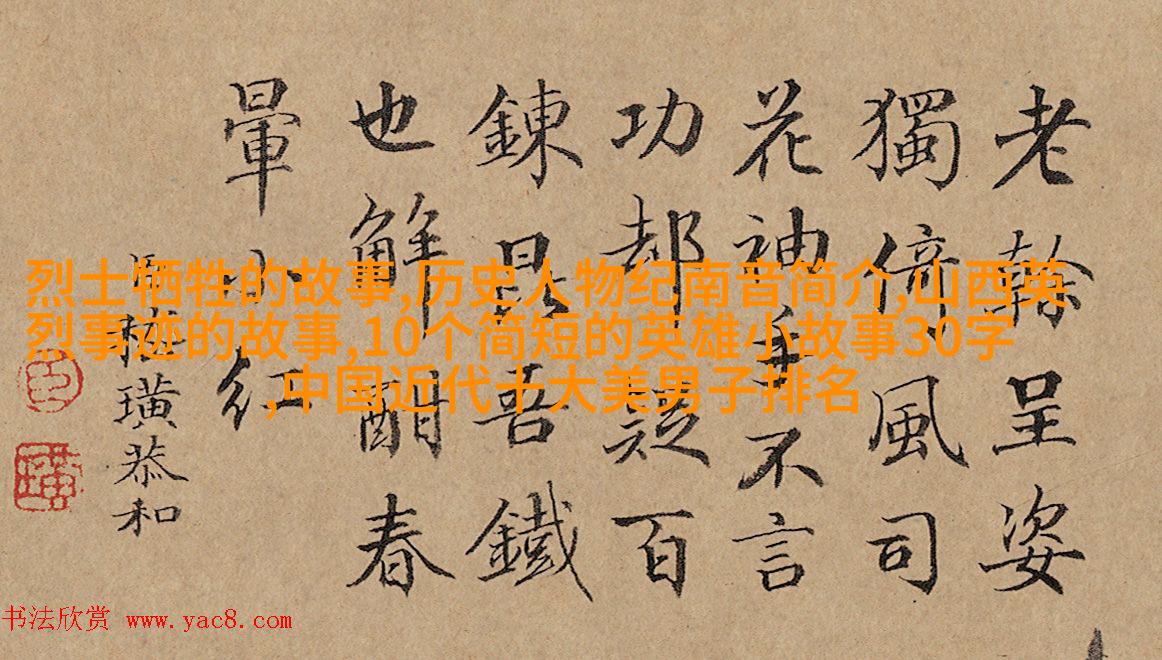 老榦呈姿
獨倚風司
花神手不言
功都疑百
鍊昆吾鐵
也解酣春
暈小紅
臣 璜恭和
臣
璜
烈士牺牲的故事,历史人物纪南音简介,山西英
烈事迹的故事,10个简短的英雄小故事30字
,中国近代十大美男子排名
书法欣赏 www.yac8.com